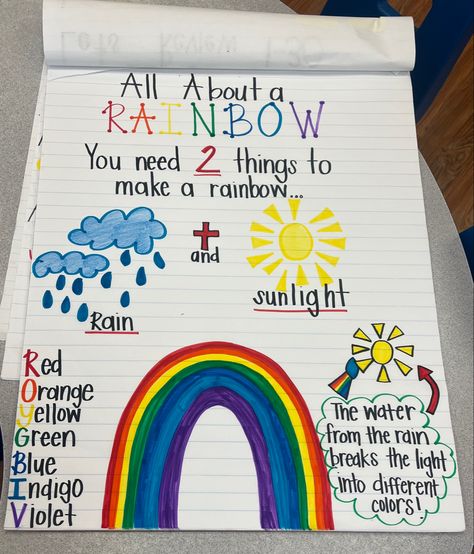 Lets Review 1.30
All About a
RAINBOW
You need 2 things to
make a rainbow...
+
and
Rain
sunlight
Red
Orange
Yellow
Green
Blue
Indigo
Violet
The water
from the rain
breaks the light
into different
colors!